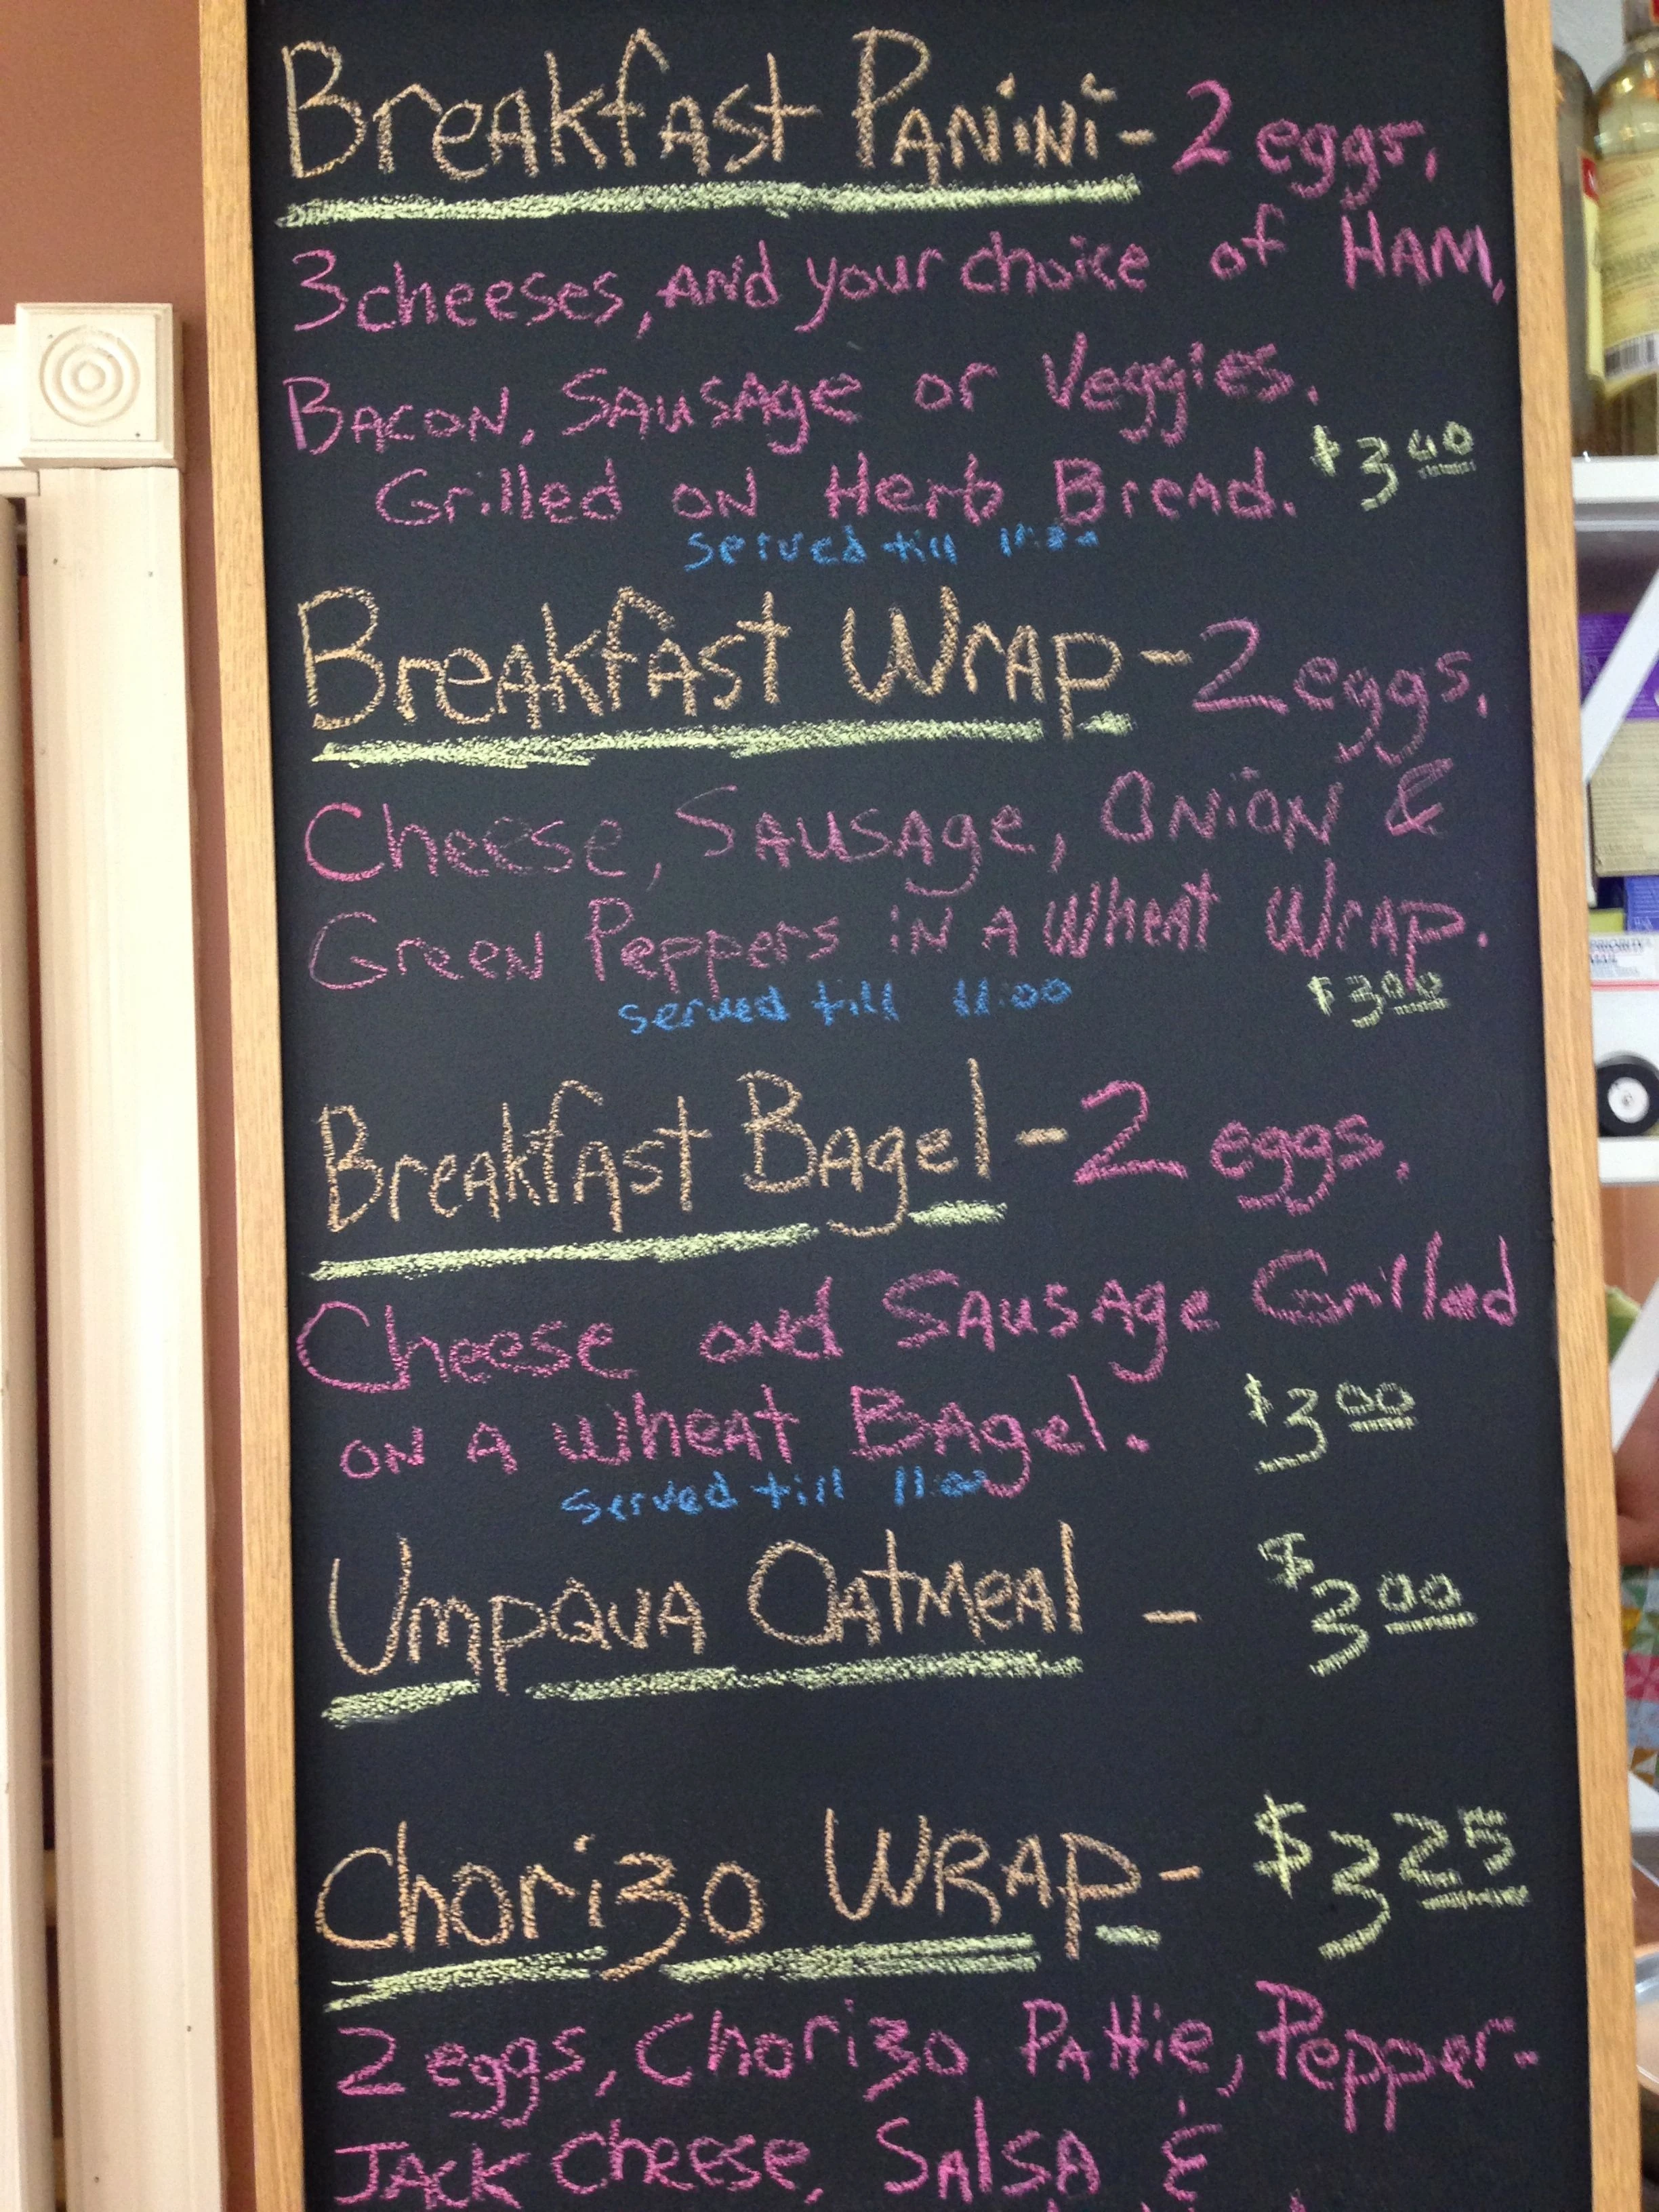 Breakfast Panini - 2 eggs,
3 cheeses, and your choice of HAM,
Bacon, Sausage or Veggies.
Grilled on Herb Bread. $3.00
served till 11:00
Breakfast Wrap - 2 eggs,
Cheese, Sausage, Onion &
Green Peppers in a Wheat Wrap.
served till 11:00 $3.00
Breakfast Bagel - 2 eggs,
Cheese and Sausage Grilled
on a Wheat Bagel. $3.00
served till 11:00
Umpqua Oatmeal - $3.00
Chorizo WRAP - $3.25
2 eggs, Chorizo Pattie, Pepper-
Jack Cheese, Salsa &